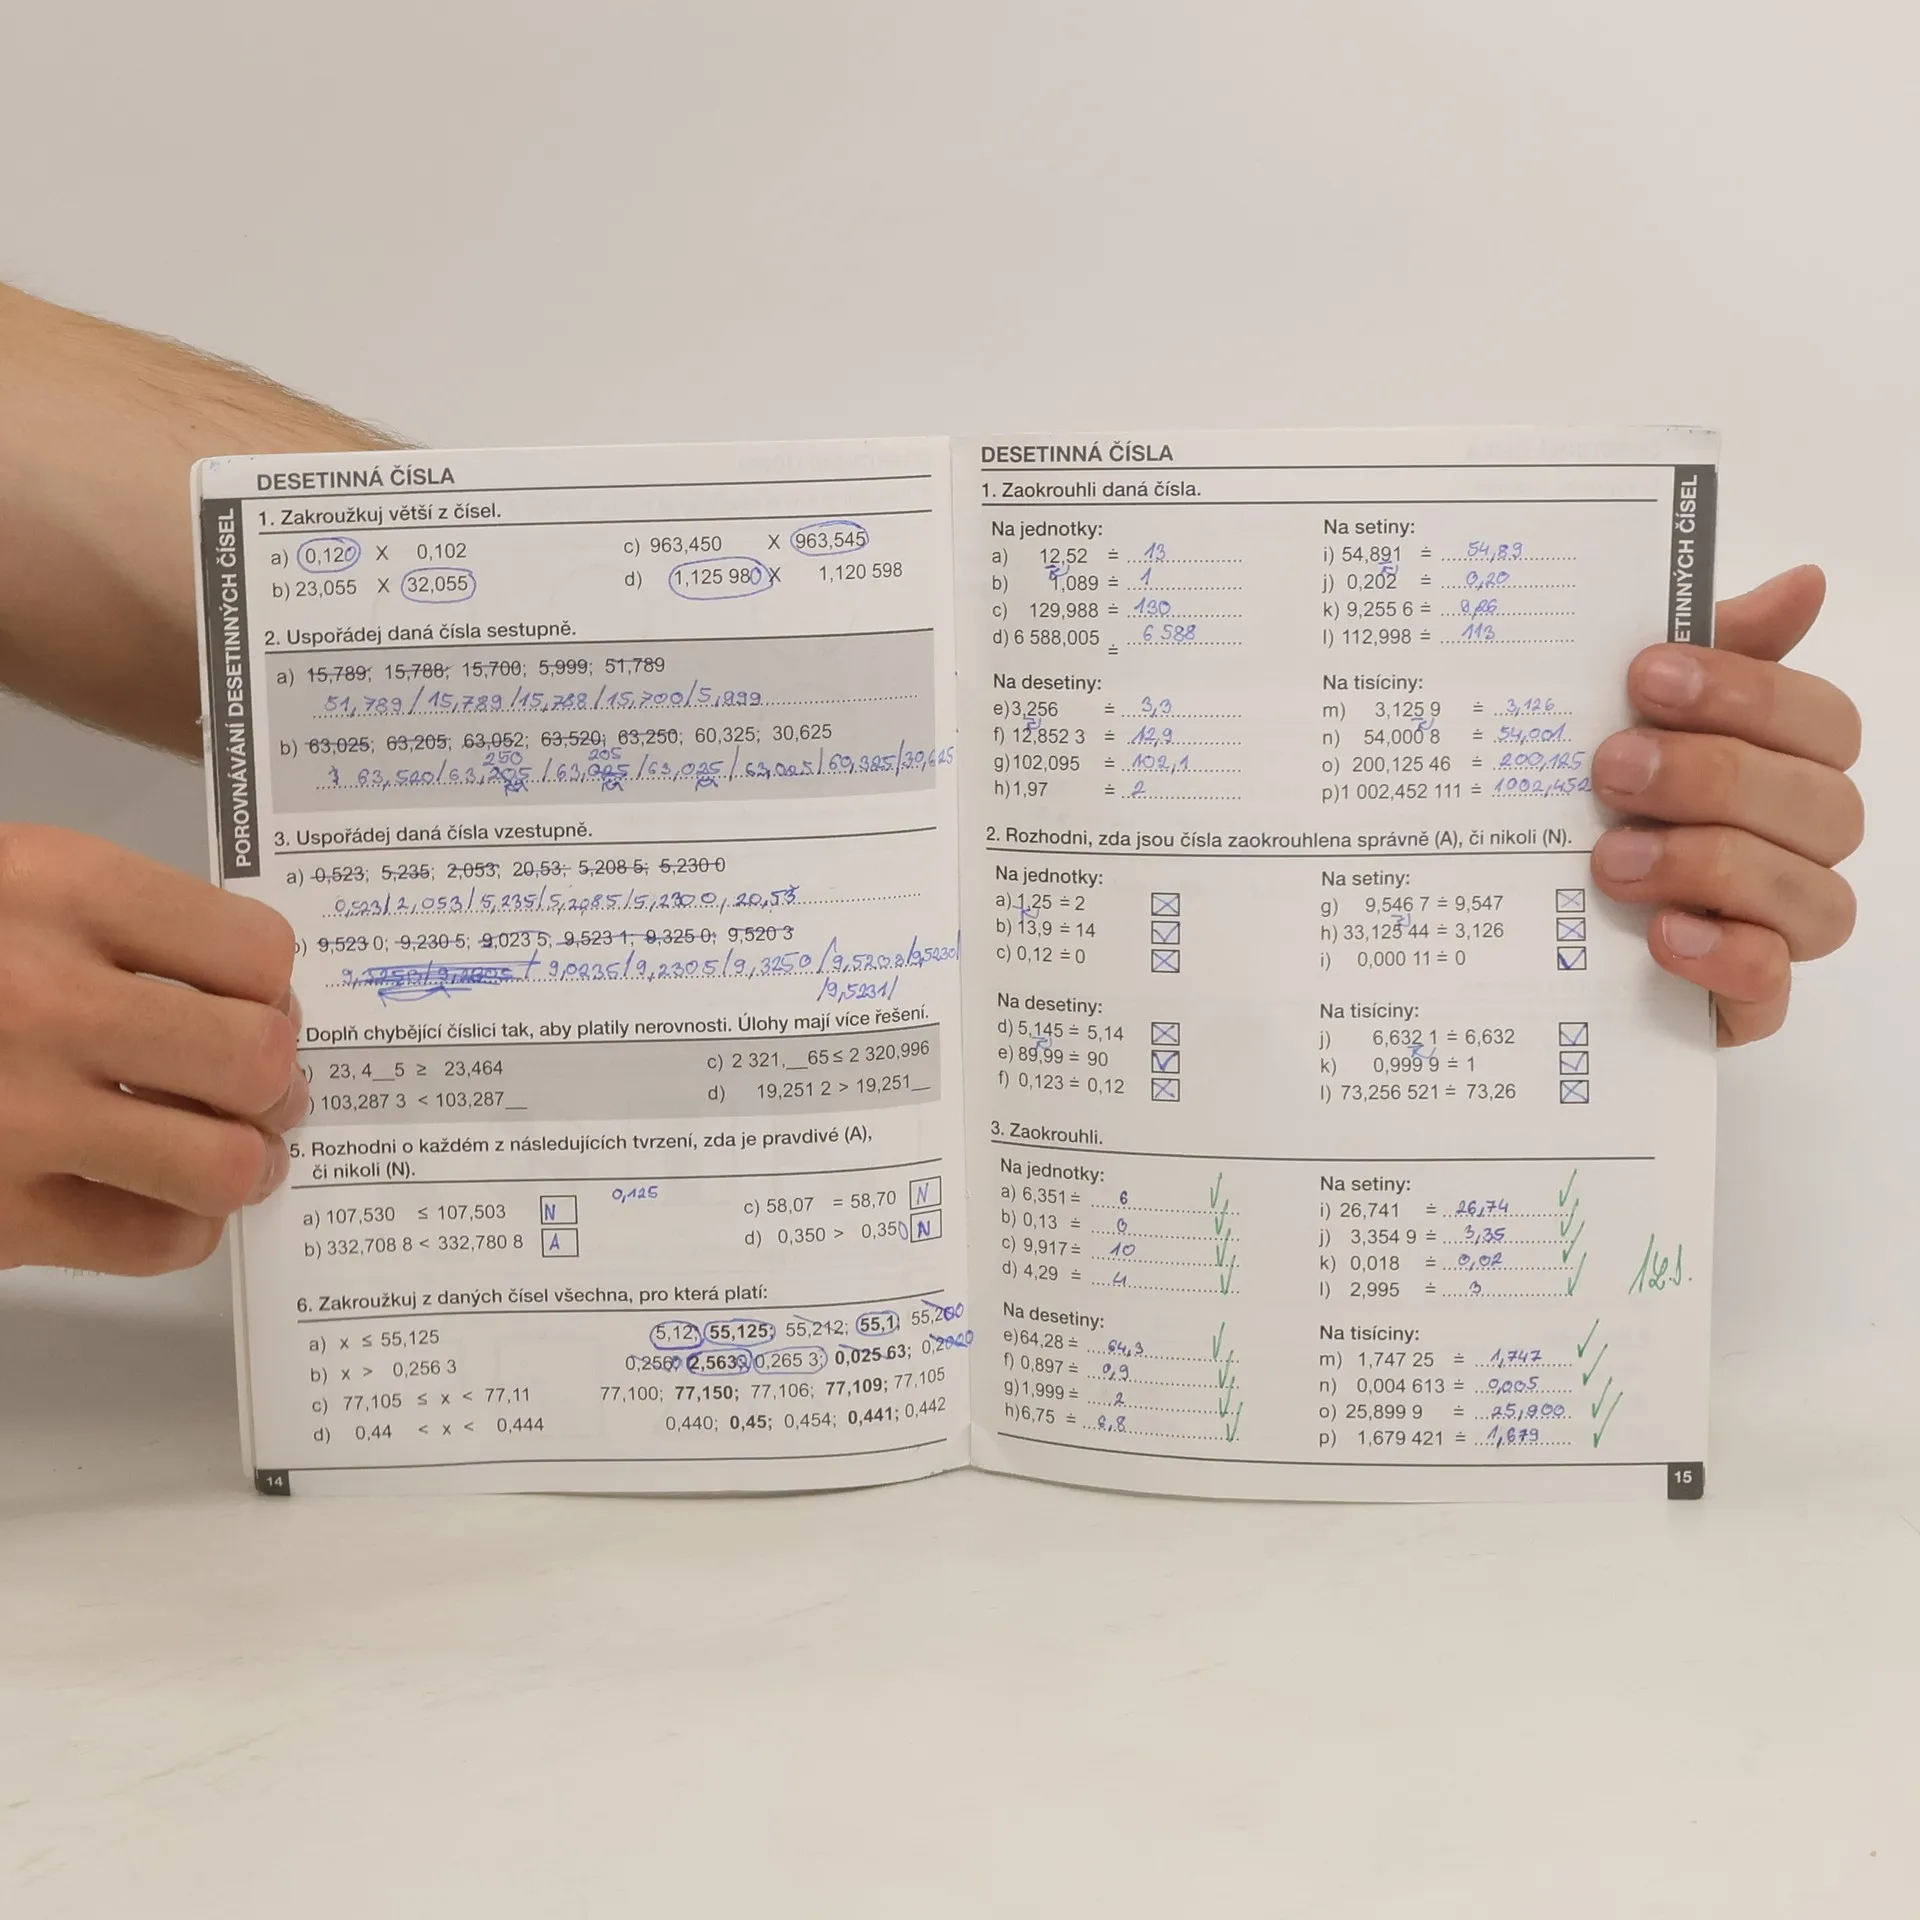 DESETINNÁ ČÍSLA
POROVNÁVÁNÍ DESETINNÝCH ČÍSEL
1. Zakroužkuj větší z čísel.
a) 0,120 X 0,102
b) 23,055 X 32,055
c) 963,450 X 963,545
d) 1,125 980 X 1,120 598
2. Uspořádej daná čísla sestupně.
a) 15,789; 15,788; 15,700; 5,999; 51,789
51,789 / 15,789 / 15,788 / 15,700 / 5,999
b) 63,025; 63,205; 63,052; 63,520; 63,250; 60,325; 30,625
250 205
63,520/63,205/63,025/63,025/63,025/60,325/30,625
3. Uspořádej daná čísla vzestupně.
a) 0,523; 5,235; 2,053; 20,53; 5,208 5; 5,230 0
0,523/2,053/5,235/5,2085/5,2300, 20,53
b) 9,523 0; 9,230 5; 9,023 5; 9,523 1; 9,325 0; 9,520 3
9,0235/9,2305/9,3250/9,5203/9,5230/
/9,5231/
. Doplň chybějící číslici tak, aby platily nerovnosti. Úlohy mají více řešení.
) 23, 4__5 ≥ 23,464
) 103,287 3 < 103,287__
c) 2 321,__65 ≤ 2 320,996
d) 19,251 2 > 19,251__
5. Rozhodni o každém z následujících tvrzení, zda je pravdivé (A),
či nikoli (N).
0,125
a) 107,530 ≤ 107,503 N
b) 332,708 8 < 332,780 8 A
c) 58,07 = 58,70 N
d) 0,350 > 0,350 N
6. Zakroužkuj z daných čísel všechna, pro která platí:
a) x ≤ 55,125 5,12; 55,125; 55,212; 55,1; 55,200
b) x > 0,256 3 0,256; 2,563; 0,265 3; 0,025 63; 0,2
c) 77,105 ≤ x < 77,11 77,100; 77,150; 77,106; 77,109; 77,105
d) 0,44 < x < 0,444 0,440; 0,45; 0,454; 0,441; 0,442
14
DESETINNÁ ČÍSLA
ETINNÝCH ČÍSEL
1. Zaokrouhli daná čísla.
Na jednotky:
a) 12,52 ≐ 13
b) 1,089 ≐ 1
c) 129,988 ≐ 130
d) 6 588,005 ≐ 6 588
Na desetiny:
e) 3,256 ≐ 3,3
f) 12,852 3 ≐ 12,9
g) 102,095 ≐ 102,1
h) 1,97 ≐ 2
Na setiny:
i) 54,891 ≐ 54,89
j) 0,202 ≐ 0,20
k) 9,255 6 ≐ 9,26
l) 112,998 ≐ 113
Na tisíciny:
m) 3,125 9 ≐ 3,126
n) 54,000 8 ≐ 54,001
o) 200,125 46 ≐ 200,125
p) 1 002,452 111 ≐ 1002,452
2. Rozhodni, zda jsou čísla zaokrouhlena správně (A), či nikoli (N).
Na jednotky:
a) 1,25 ≐ 2
b) 13,9 ≐ 14
c) 0,12 ≐ 0
Na desetiny:
d) 5,145 ≐ 5,14
e) 89,99 ≐ 90
f) 0,123 ≐ 0,12
Na setiny:
g) 9,546 7 ≐ 9,547
h) 33,125 44 ≐ 3,126
i) 0,000 11 ≐ 0
Na tisíciny:
j) 6,632 1 ≐ 6,632
k) 0,999 9 ≐ 1
l) 73,256 521 ≐ 73,26
3. Zaokrouhli.
Na jednotky:
a) 6,351 ≐ 6
b) 0,13 ≐ 0
c) 9,917 ≐ 10
d) 4,29 ≐ 4
Na desetiny:
e) 64,28 ≐ 64,3
f) 0,897 ≐ 0,9
g) 1,999 ≐ 2
h) 6,75 ≐ 6,8
Na setiny:
i) 26,741 ≐ 26,74
j) 3,354 9 ≐ 3,35
k) 0,018 ≐ 0,02
l) 2,995 ≐ 3
Na tisíciny:
m) 1,747 25 ≐ 1,747
n) 0,004 613 ≐ 0,005
o) 25,899 9 ≐ 25,900
p) 1,679 421 ≐ 1,679
15